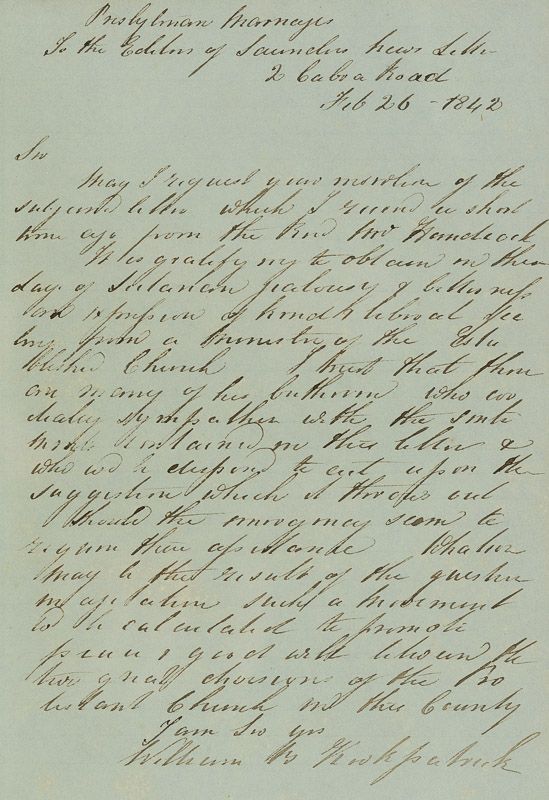 Presbyterian Marriages
To the Editor of Saunders News Letter
2 Cabra Road
Feb 26 - 1842
Sir
May I request your insertion of the
subjoined letter which I received a short
time ago from the Revd Mr Handcock
It is gratifying to obtain in these
days of Sectarian Jealousy & bitterness
an expression of kind & liberal fee
ling from a Minister of the Esta
blished Church I trust that there
are many of his brethren who cor
dially sympathise with the senti
ments contained in this letter &
who wd be disposed to act upon the
suggestion which it throws out
should the emergency seem to
require their assistance Whatever
may be the result of the question
in agitation such a movement
wd be calculated to promote
peace & good will between the
two great divisions of the Pro
testant Church in this Country
I am Sir yrs
William B Kirkpatrick